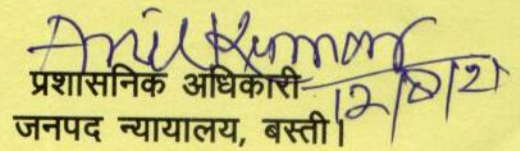 Anil Kumar
प्रशासनिक अधिकारी
जनपद न्यायालय, बस्ती।